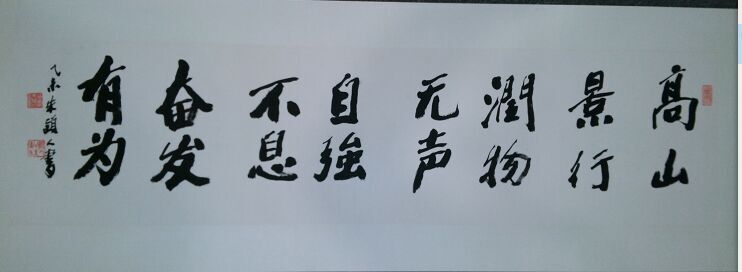 高山
景行
潤物
无声
自強
不息
奋发
有为
乙未朱
人書